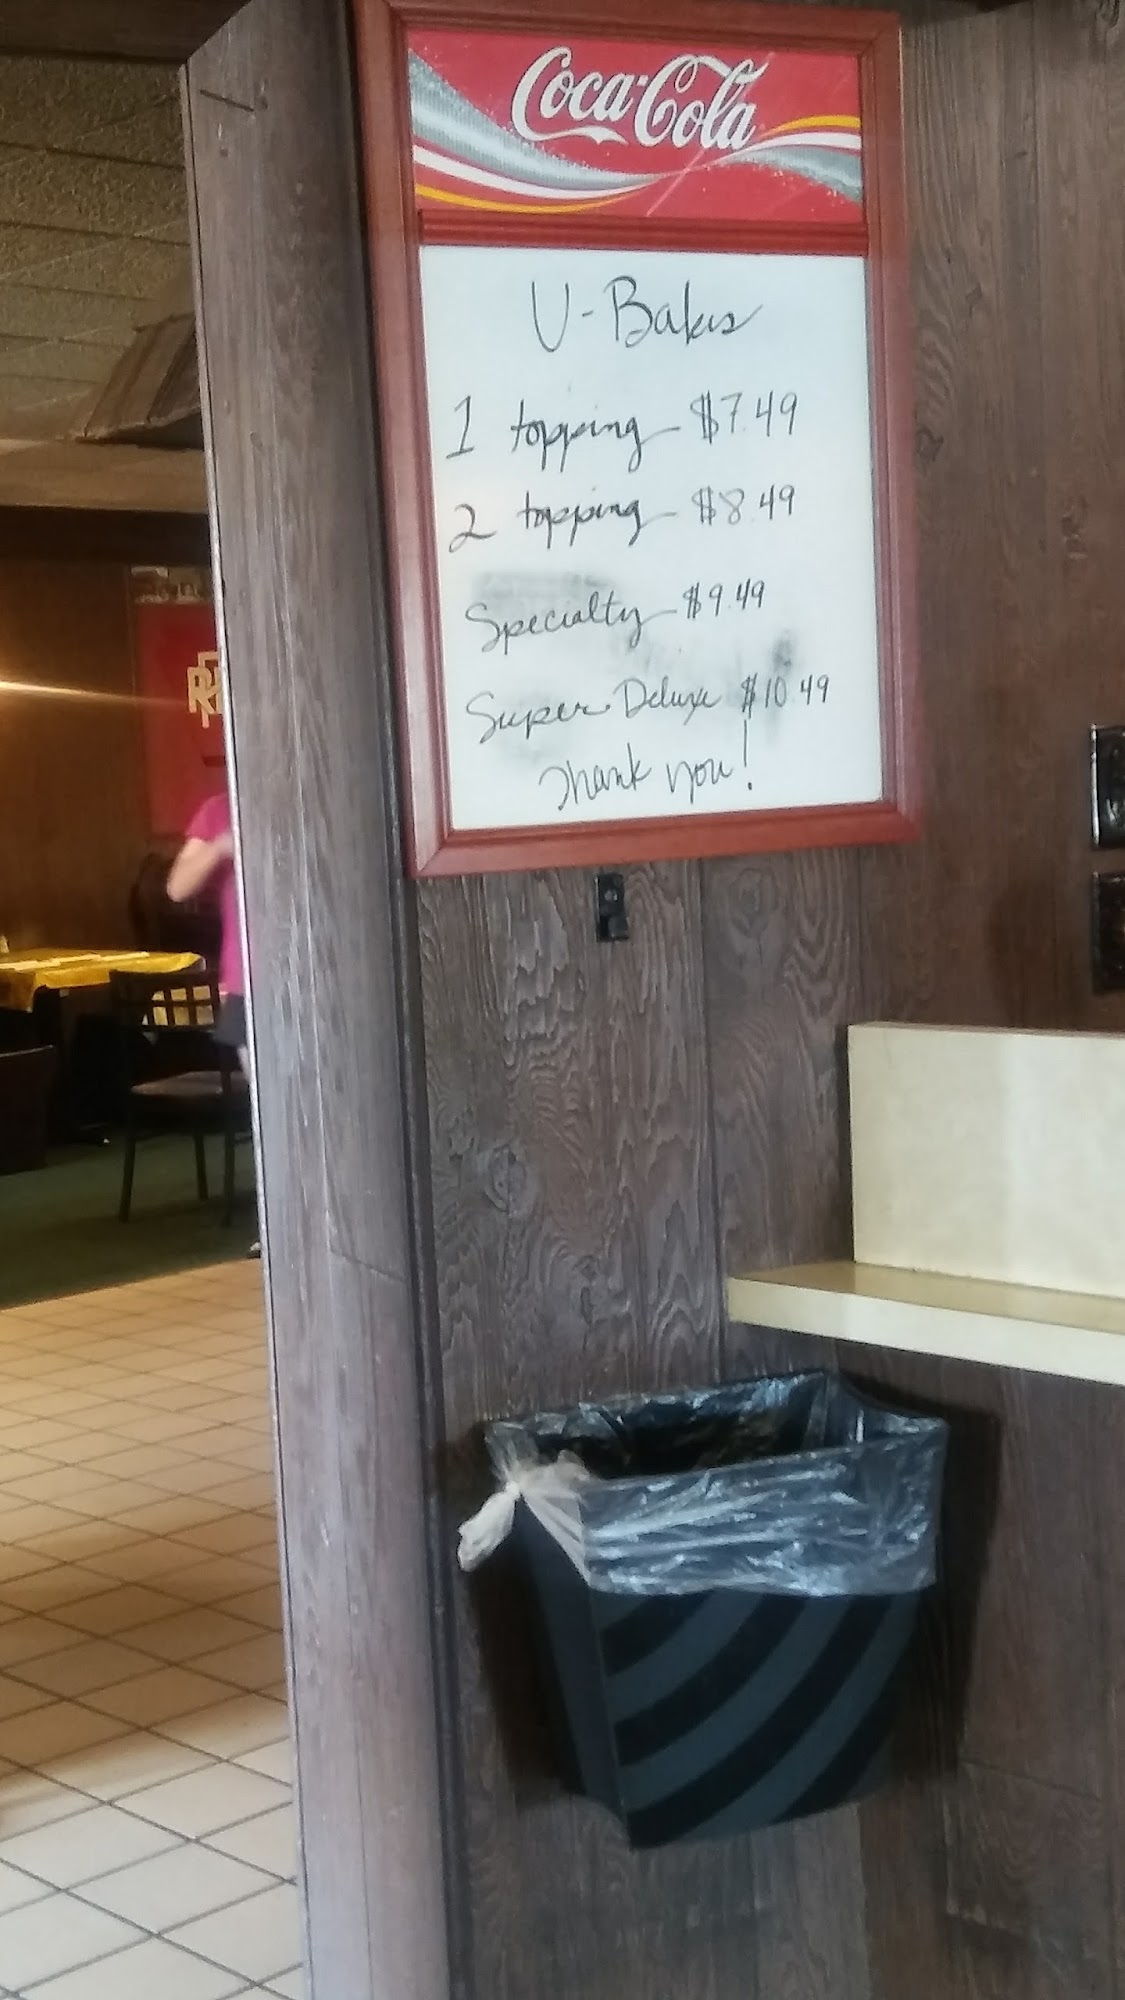 Coca-Cola
U-Bakes
1 topping - $7.49
2 topping - $8.49
Specialty - $9.49
Super Deluxe $10.49
Thank you!